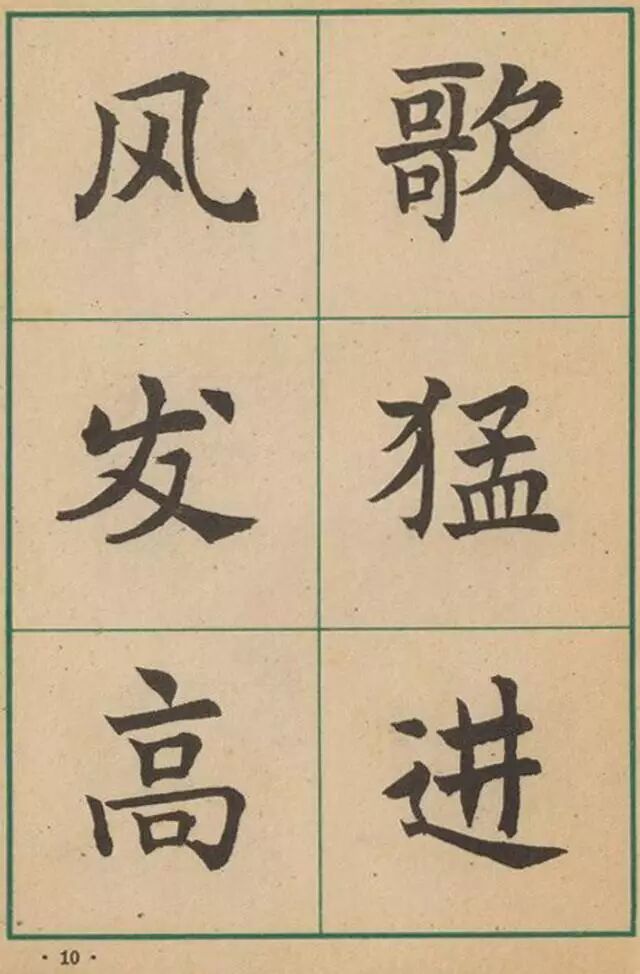 歌猛进
风发高
· 10 ·